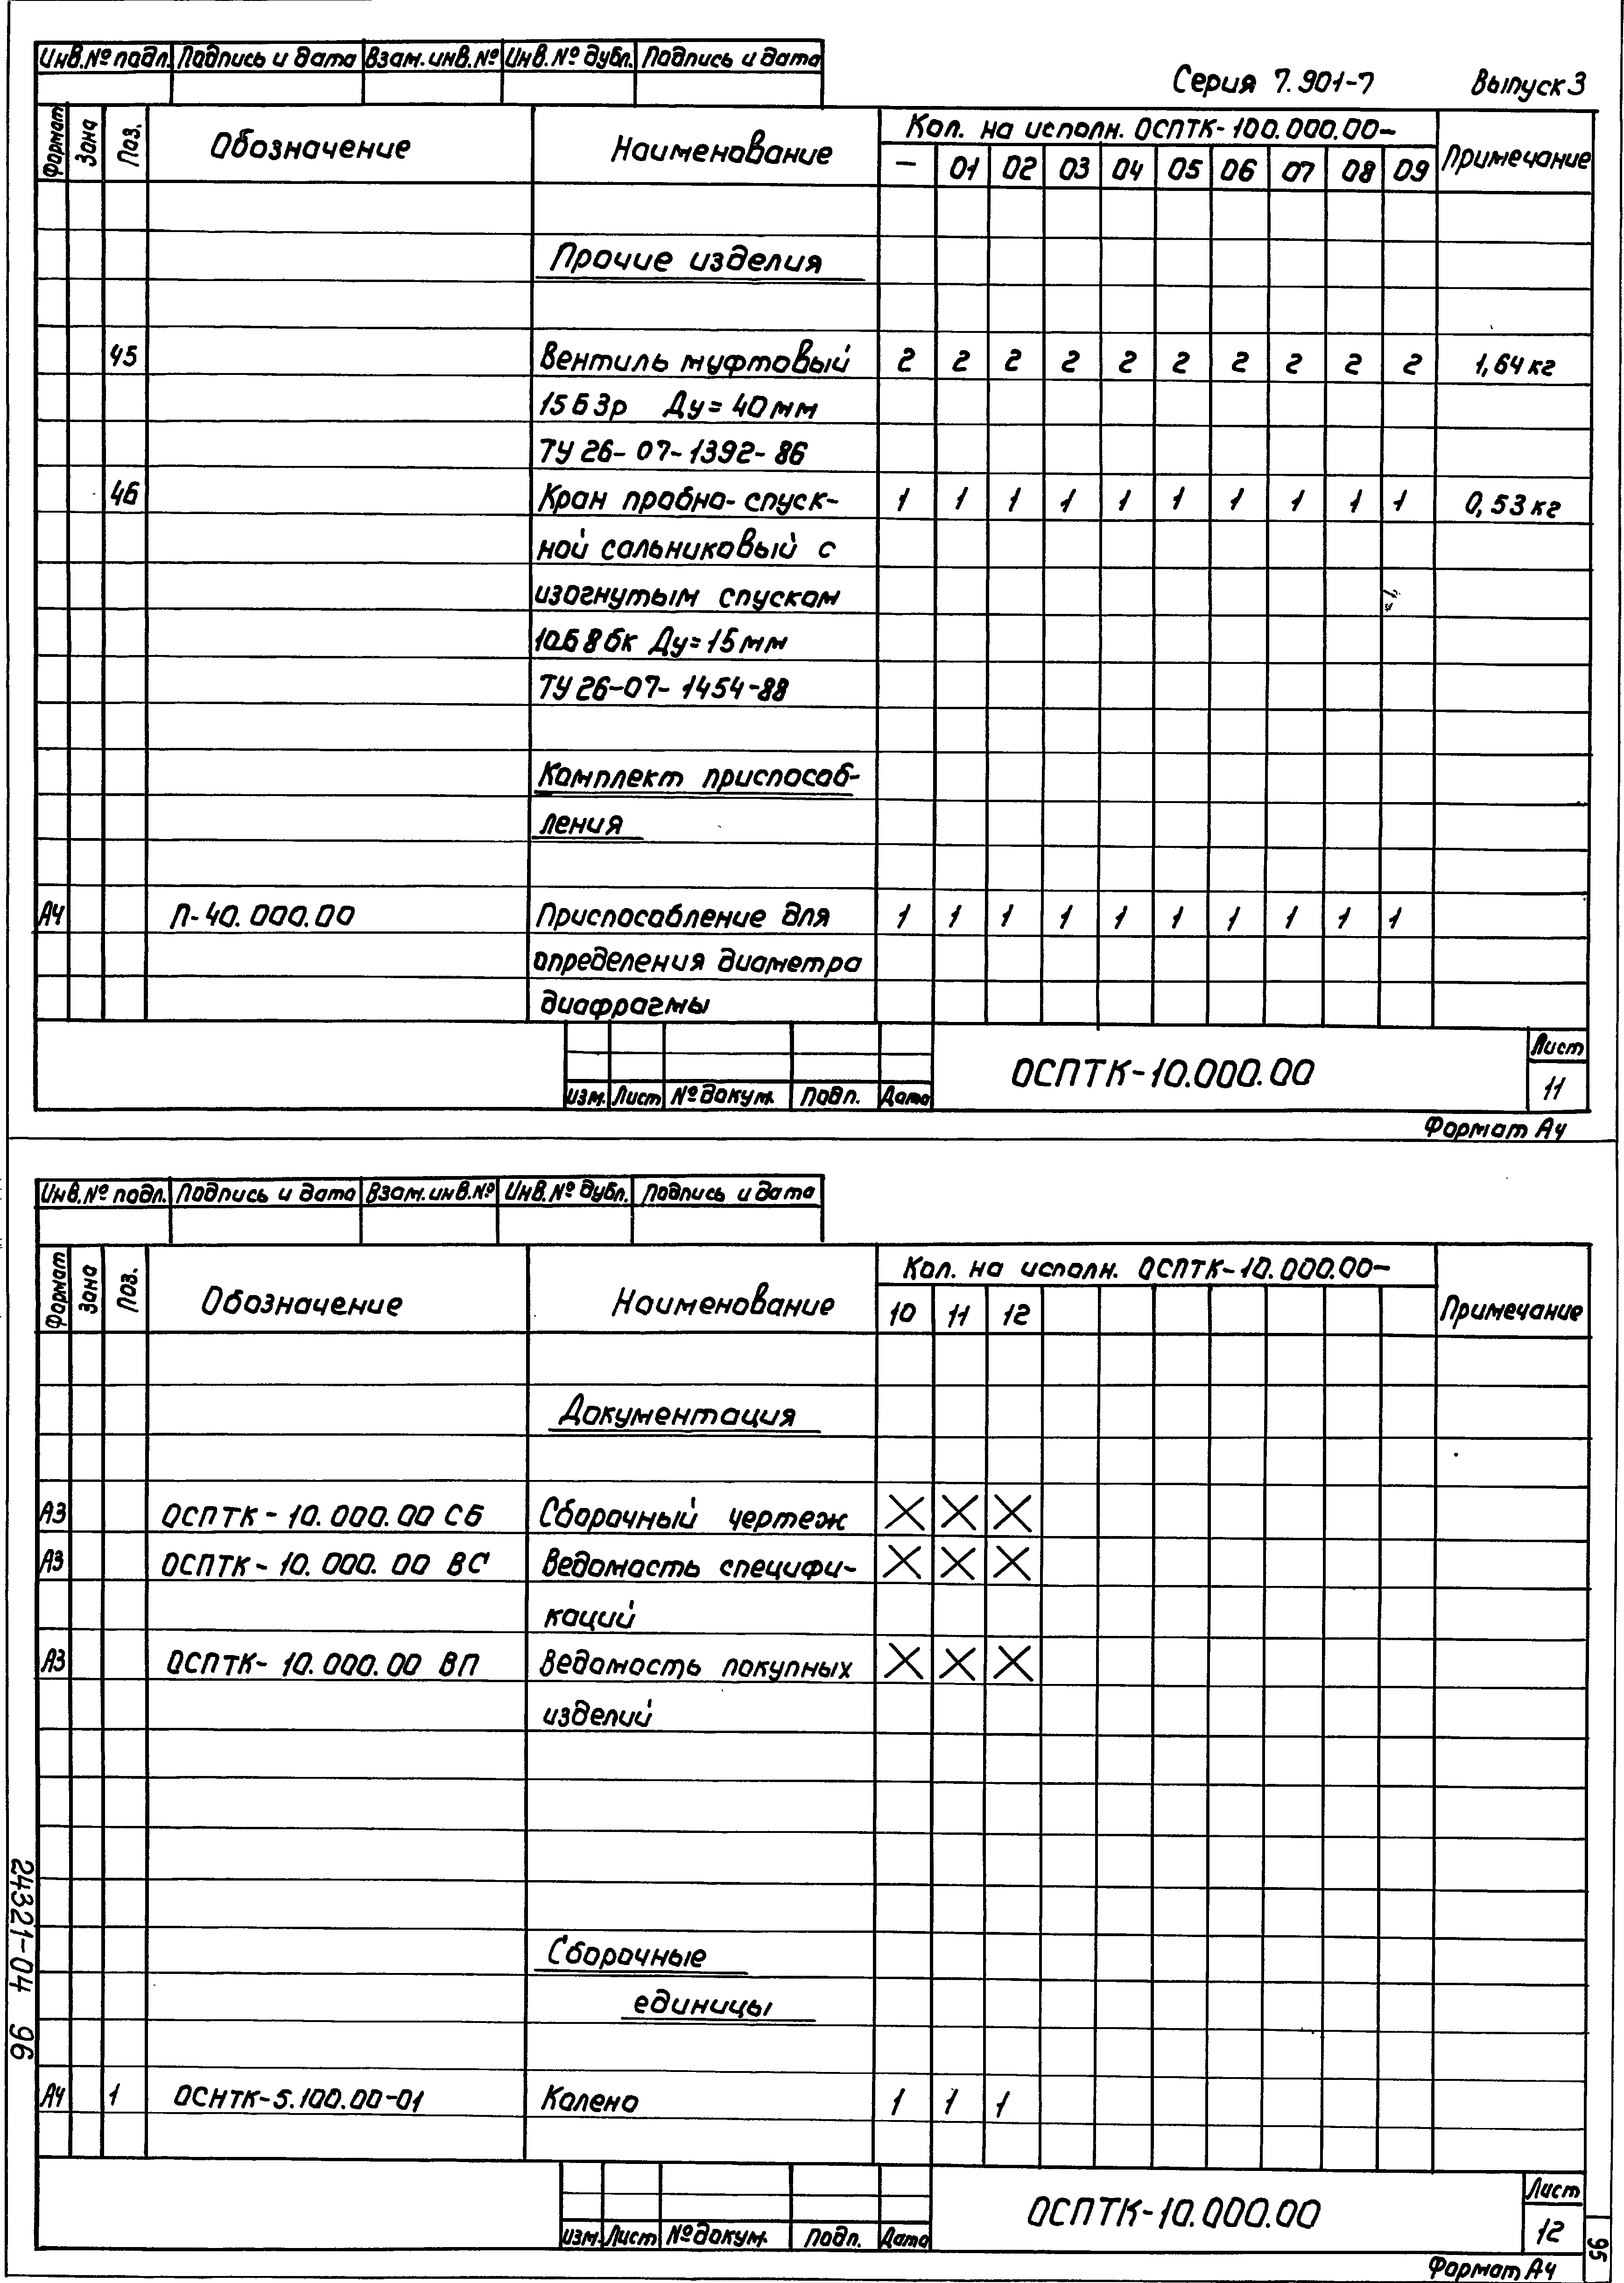 Инв.№ подл. Подпись и дата Взам.инв.№ Инв.№ дубл. Подпись и дата
Серия 7.901-7 Выпуск 3
Формат Зона Поз. Обозначение Наименование Кол. на исполн. ОСПТК-100.000.00- Примечание
- 01 02 03 04 05 06 07 08 09
Прочие изделия
45 Вентиль муфтовый 2 2 2 2 2 2 2 2 2 2 1,64 кг
15Б3р Ду=40мм
ТУ 26-07-1392-86
46 Кран пробно-спуск- 1 1 1 1 1 1 1 1 1 1 0,53 кг
ной сальниковый с
изогнутым спуском
10Б8бк Ду=15мм
ТУ 26-07-1454-88
Комплект приспособ-
ления
А4 П-40.000.00 Приспособление для 1 1 1 1 1 1 1 1 1 1
определения диаметра
диафрагмы
Изм. Лист № докум. Подп. Дата
ОСПТК-10.000.00
Лист
11
Формат А4
Инв.№ подл. Подпись и дата Взам.инв.№ Инв.№ дубл. Подпись и дата
Формат Зона Поз. Обозначение Наименование Кол. на исполн. ОСПТК-10.000.00- Примечание
10 11 12
Документация
А3 ОСПТК-10.000.00 СБ Сборочный чертеж X X X
А3 ОСПТК-10.000.00 ВС Ведомость специфи- X X X
каций
А3 ОСПТК-10.000.00 ВП Ведомость покупных X X X
изделий
Сборочные
единицы
А4 1 ОСНТК-5.100.00-01 Колено 1 1 1
Изм. Лист № докум. Подп. Дата
ОСПТК-10.000.00
Лист
12
Формат А4
24321-04 96
95